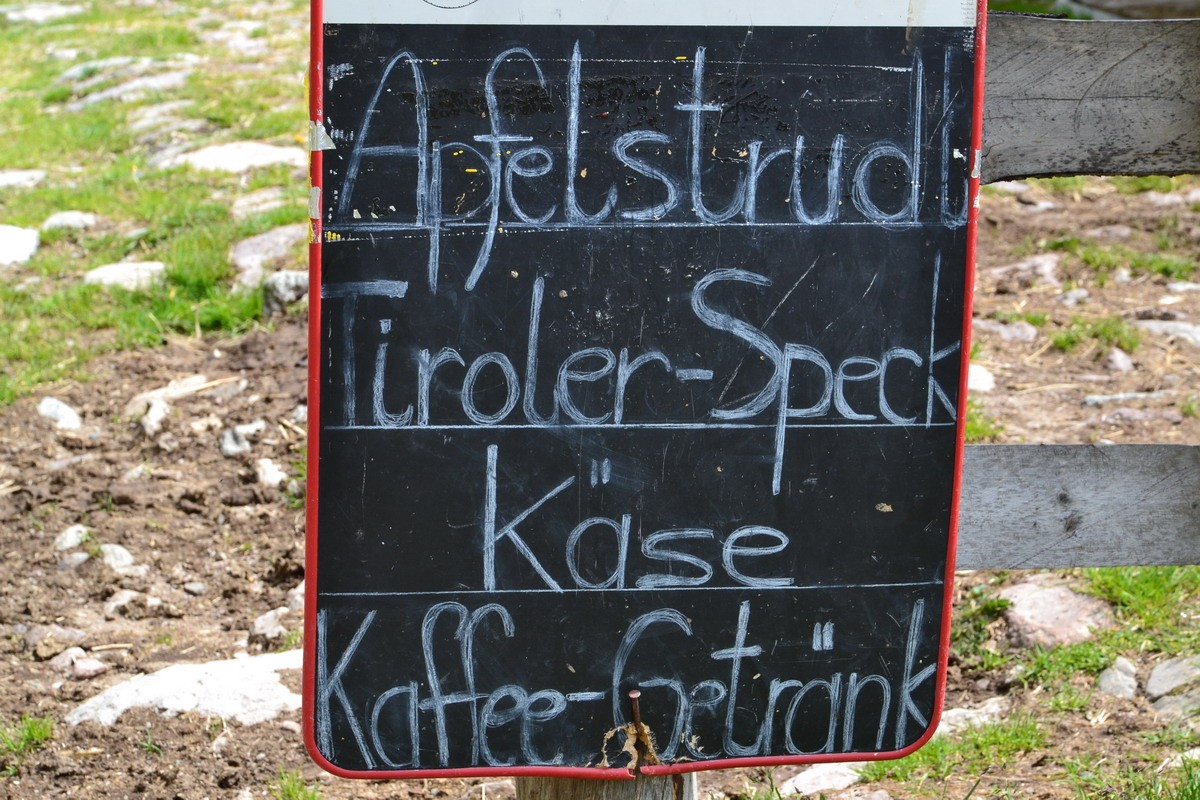 Apfelstrudl
Tiroler-Speck
Käse
Kaffee-Getränk